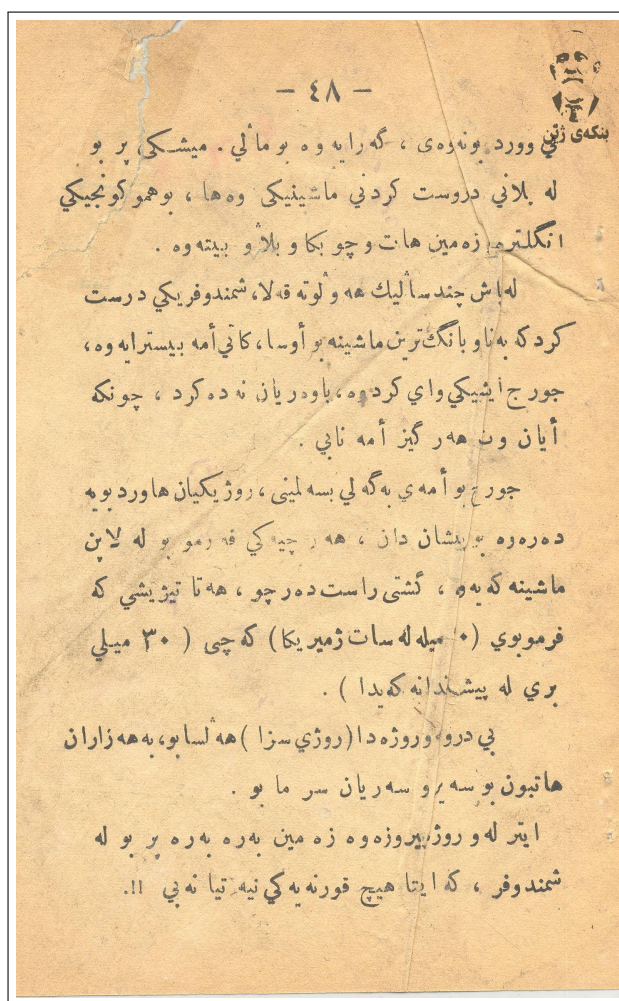 – ٤٨ –
بنکەی ژین
لي وورد بونەوەی ، گەرایە وە بو مالٚي . میشـکی پر بو
لە بلاني دروست کردني ماشینیکی وەها ، بوهمو کونجیکي
انگلترە زەمین هات و چو بکا و بلاٚو ببیتەوە .
لەباش چند سالٚیك هە ولٚوتە قەلا، شمندوفریکي درست
کرد کە بە ناو بانگ ترین ماشینە بو أوسا، کاتي أمە بیسترایە وە،
جورج ایشیکي وای کردوە، باوەریان نە دەکرد ، چونکە
أیان وت هەر گیز أمە نابي .
جورج بو أمەي بەگە لي بسە لمینی ، روژیکیان هاورد بویە
دەرەوە بو پیشان دان ، هەر چیە کي فەرمو بو لە لاین
ماشینە کە یەوە ، گشتی راست دەر چو ، هە تا تیژیشي کە
فرموبوي ( میلە لە سات ژمیر یکا ) کە چی ( ٣٠ میـلي
بري لە پیشـندانە کەیدا ) .
بي درو وروژە دا (روژي سزا ) هەلٚسا بو، بە هە زاران
هاتبون بو سە یرو سەریان سر ما بو .
ایتر لەو روژ پیروزەوە زە مین بەرە بەرە پر بو لە
شمندوفر ، کە ایتا هیچ قورنە یە کي نیە تیا نە بي !!.